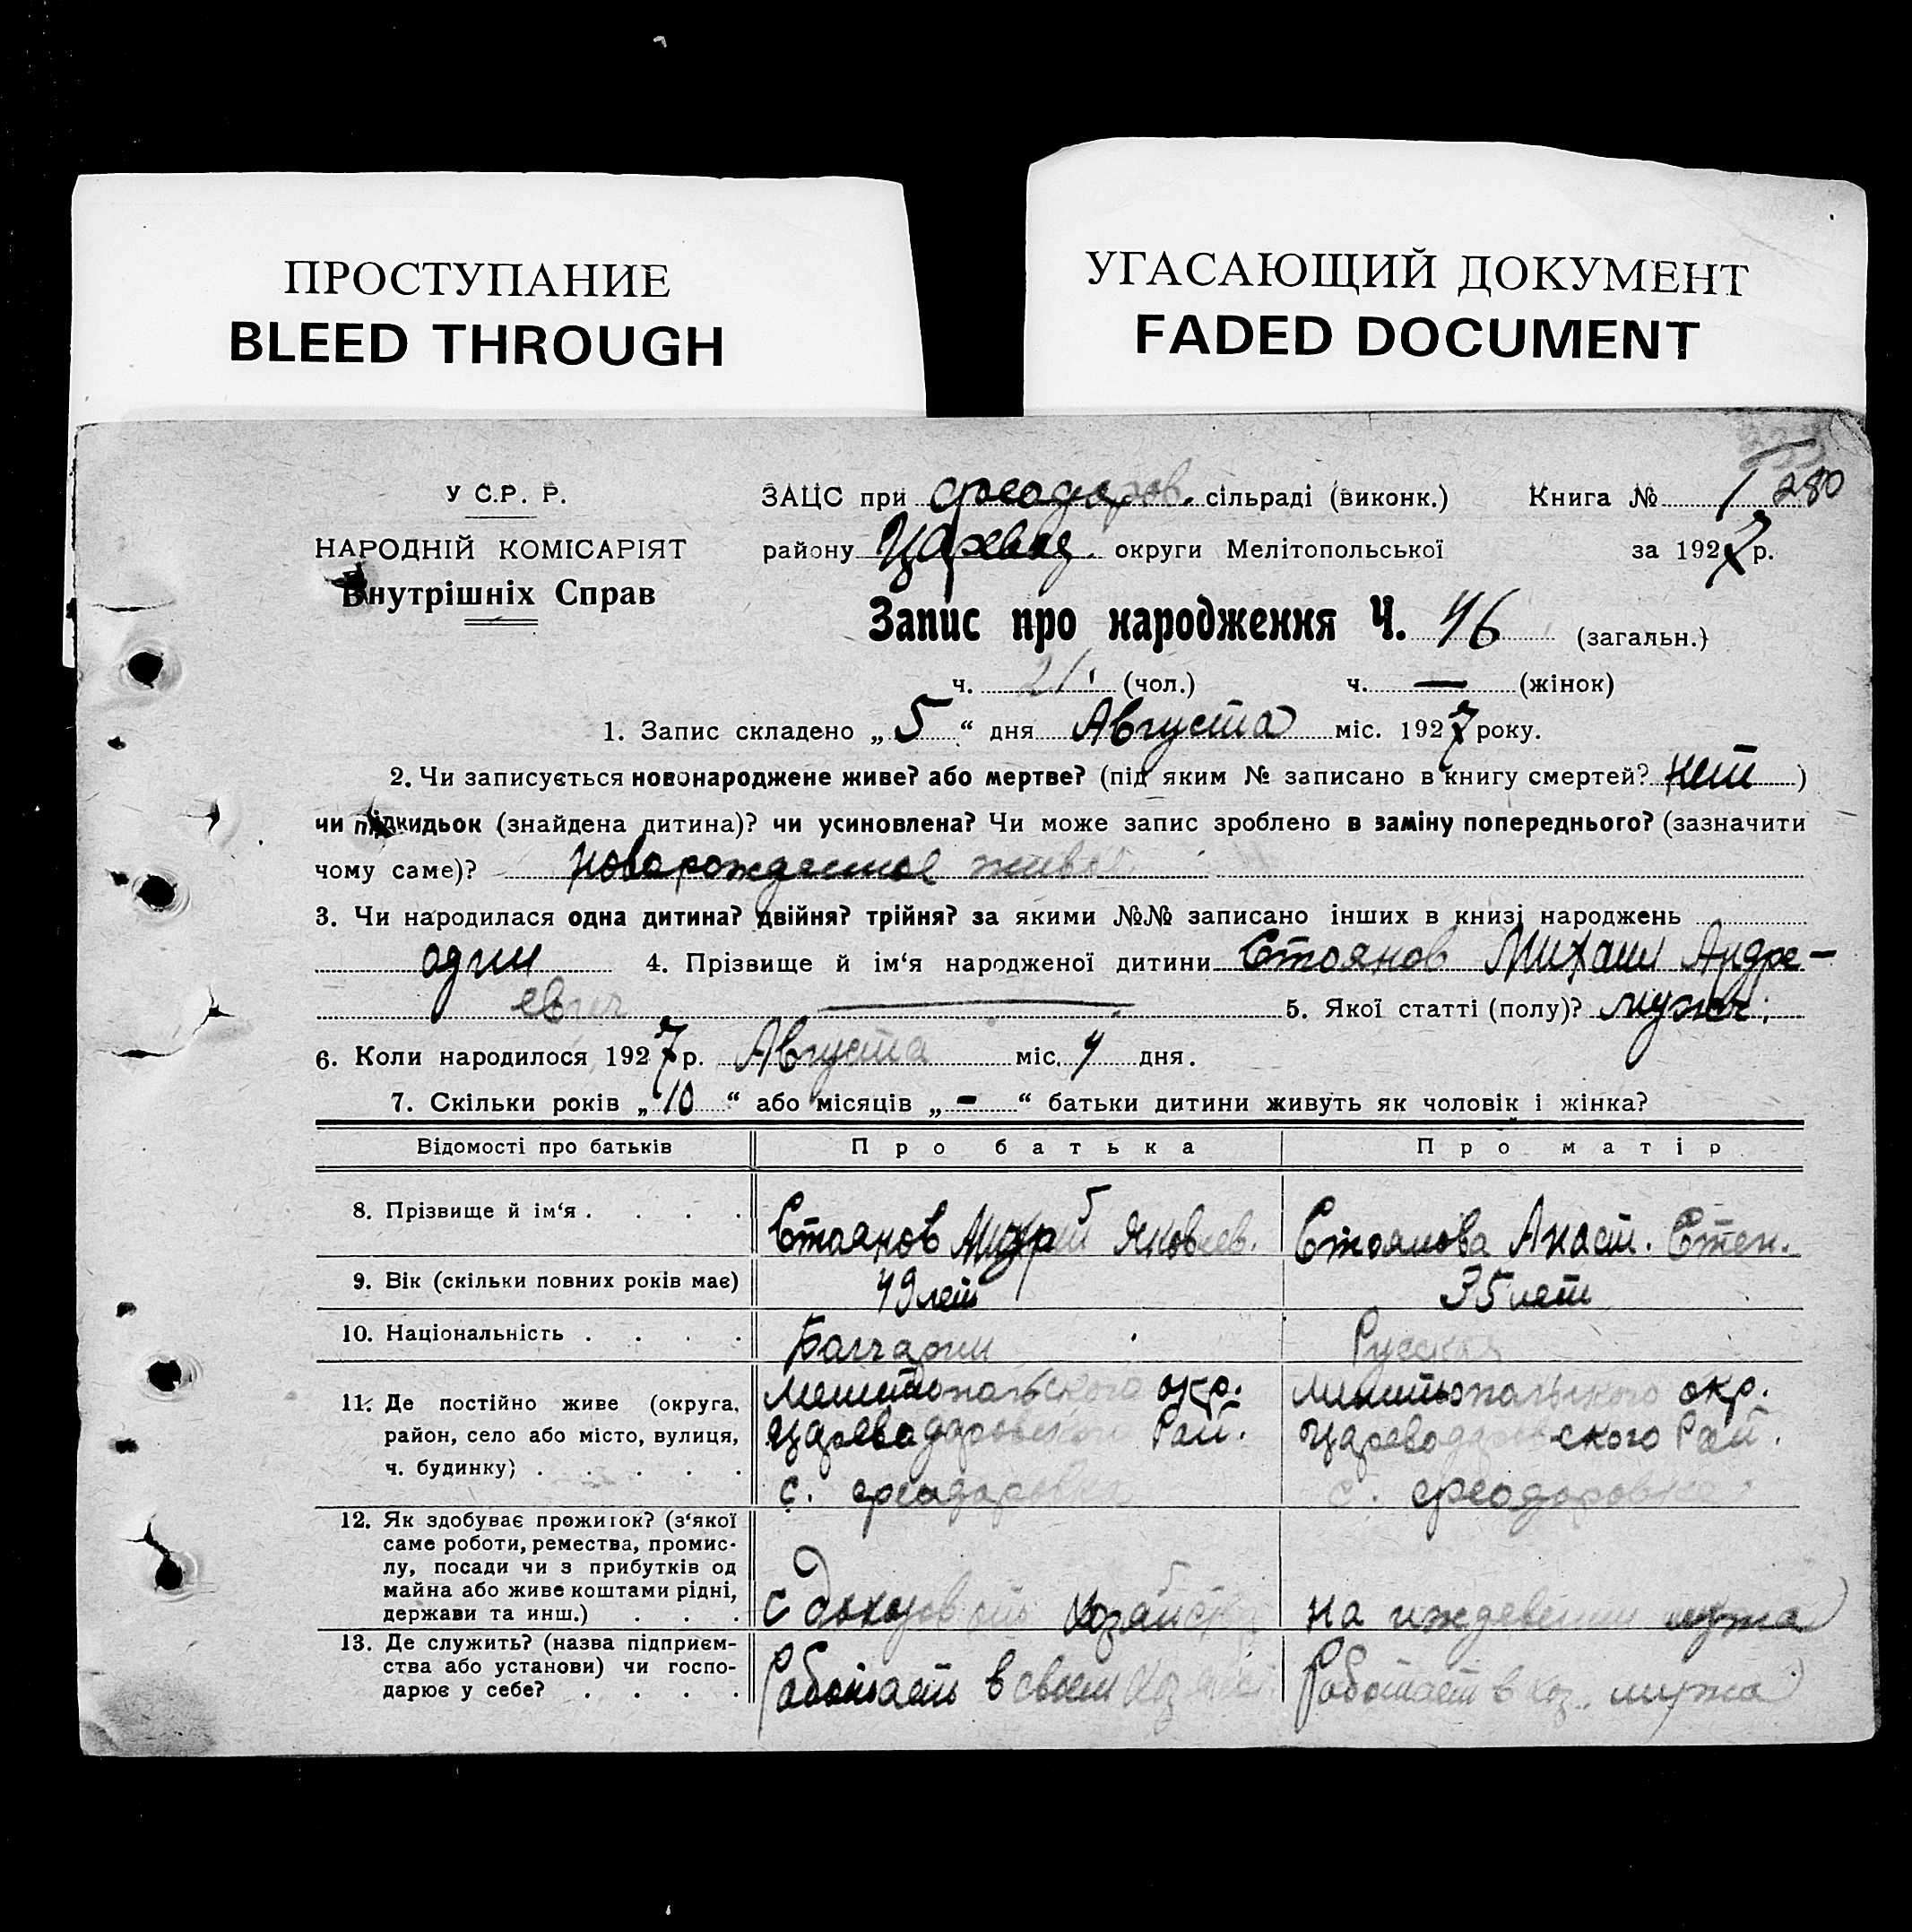 ПРОСТУПАНИЕ
BLEED THROUGH
УГАСАЮЩИЙ ДОКУМЕНТ
FADED DOCUMENT
У С.Р. Р.
НАРОДНІЙ КОМІСАРІЯТ
Внутрішніх Справ
ЗАЦС при Феодоров. сільраді (виконк.) Книга № 280
району округи Мелітопольської за 1927 р.
Запис про народження Ч. 46 (загальн.)
ч. 21 (чол.) ч. — (жінок)
1. Запис складено „5“ дня Августа міс. 1927 року.
2. Чи записується новонароджене живе? або мертве? (під яким № записано в книгу смертей? нет)
чи підкидьок (знайдена дитина)? чи усиновлена? Чи може запис зроблено в заміну попереднього? (зазначити
чому саме)? новорожденное живое
3. Чи народилася одна дитина? двійня? трійня? за якими №№ записано інших в книзі народжень
один 4. Прізвище й ім'я народженої дитини Стоянов Михаил Андре-
евич 5. Якої статті (полу)? мужч.
6. Коли народилося 1927 р. Августа міс. 4 дня.
7. Скільки років „10“ або місяців „-“ батьки дитини живуть як чоловік і жінка?
Відомості про батьків Про батька Про матір
8. Прізвище й ім'я . . . . Стоянов Андрей Яковлев. Стоянова Анаст. Степ.
9. Вік (скільки повних років має) 49 лет 35 лет
10. Національність . . . . Болгарин Русская
11. Де постійно живе (округа, Мелитопольского окр. Мелитопольского окр.
район, село або місто, вулиця, Цареводаровского Рай. Цареводаровского Рай.
ч. будинку) . . . . . с. Феодоровка с. Феодоровка
12. Як здобуває прожиток? (з'якої
саме роботи, ремества, промис-
лу, посади чи з прибутків од
майна або живе коштами рідні,
держави та инш.) . . . С доходов от хозяйства На иждевении мужа
13. Де служить? (назва підприєм-
ства або установи) чи госпо-
дарює у себе? . . . . Работает в своем хоз Работает в хоз. мужа